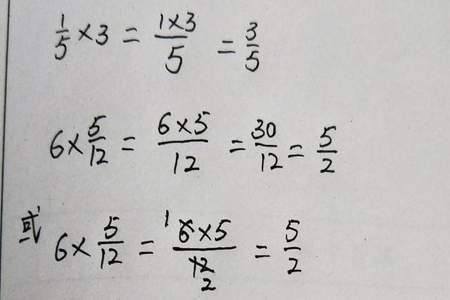 1/5 × 3 = 1×3/5 = 3/5
6 × 5/12 = 6×5/12 = 30/12 = 5/2
或 6 × 5/12 = 1 6×5/12 2 = 5/2